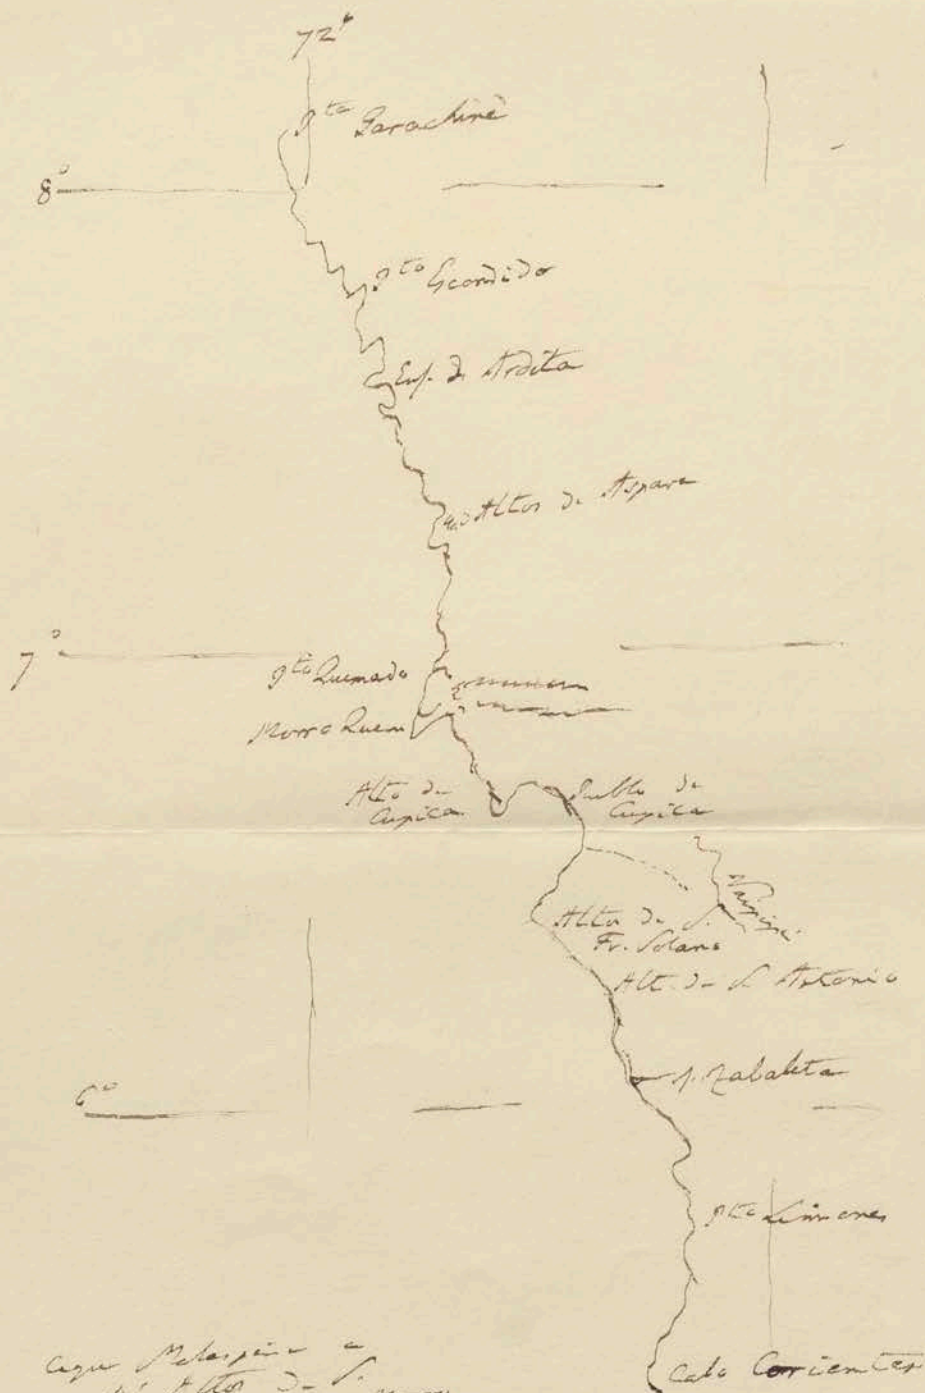 72°
Pta Garachiné
8°
Pto Escondido
Ens. de Ardita
Altos de Aspave
7°
Pto Quemado
Morro Quem
Alto de
Cupica
Pueblo de
Cupica
Naipipi
Alto de S.
Fr. Solano
Alt. de S. Antonio
6°
Zabaleta
Pta Limones
Cabo Corientes
Malespina
Altos de S.